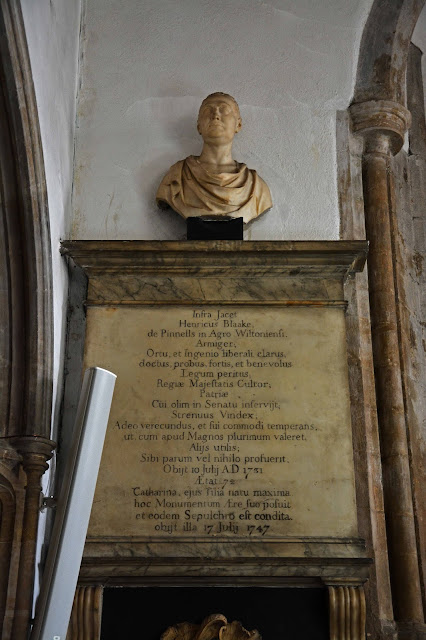 Infra Jacet
Henricus Blaake,
de Pinnells in Agro Wiltoniensi,
Armiger,
Ortu, et ingenio liberali clarus,
doctus, probus, fortis, et benevolus
Legum peritus,
Regiæ Majestatis Cultor;
Patriæ
Cui olim in Senatu inservijt,
Strenuus Vindex,
Adeo verecundus, et sui commodi temperans,
ut, cum apud Magnos plurimum valeret,
Alijs utilis,
Sibi parum vel nihilo profuerit.
Obijt 10 Julij AD 1731
Ætat 72
Catharina, ejus filia natu maxima
hoc Monumentum Ære suo posuit
et eodem Sepulchro est condita.
obijt illa 17 Julij 1747